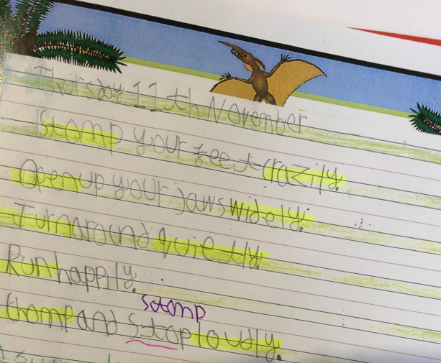 Thursday 11th November
Stomp your feet crazily.
Open up your jaws widely.
Turn around quietly.
Run happily.
stomp
Chomp and stop loudly.